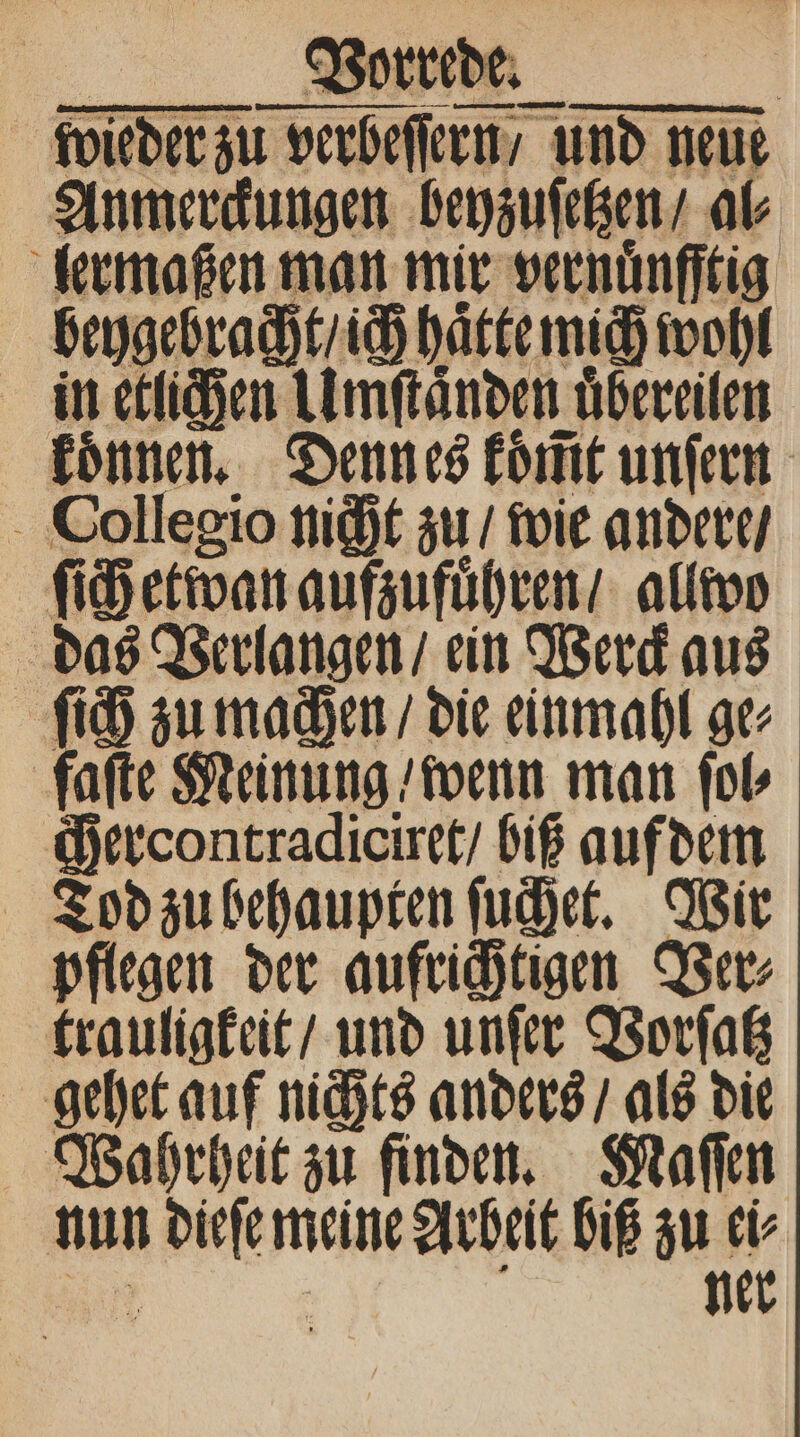 Vorrede.
wieder zu verbeſſern/ und neue
Anmerckungen beyzuſetzen/ al⸗
lermaßen man mir vernuͤnfftig
beygebracht/ ich haͤtte mich wohl
in etlichen Umſtaͤnden uͤbereilen
koͤnnen. Denn es koͤm̃t unſern
Collegio nicht zu/ wie andere/
ſich etwan aufzufuͤhren/ allwo
das Verlangen/ ein Werck aus
ſich zu machen/ die einmahl ge⸗
faſte Meinung/ wenn man ſol⸗
cher contradiciret/ biß auf dem
Tod zu behaupten ſuchet. Wir
pflegen der aufrichtigen Ver⸗
trauligkeit/ und unſer Vorſatz
gehet auf nichts anders/ als die
Wahrheit zu finden. Maſſen
nun dieſe meine Arbeit biß zu ei⸗
ner